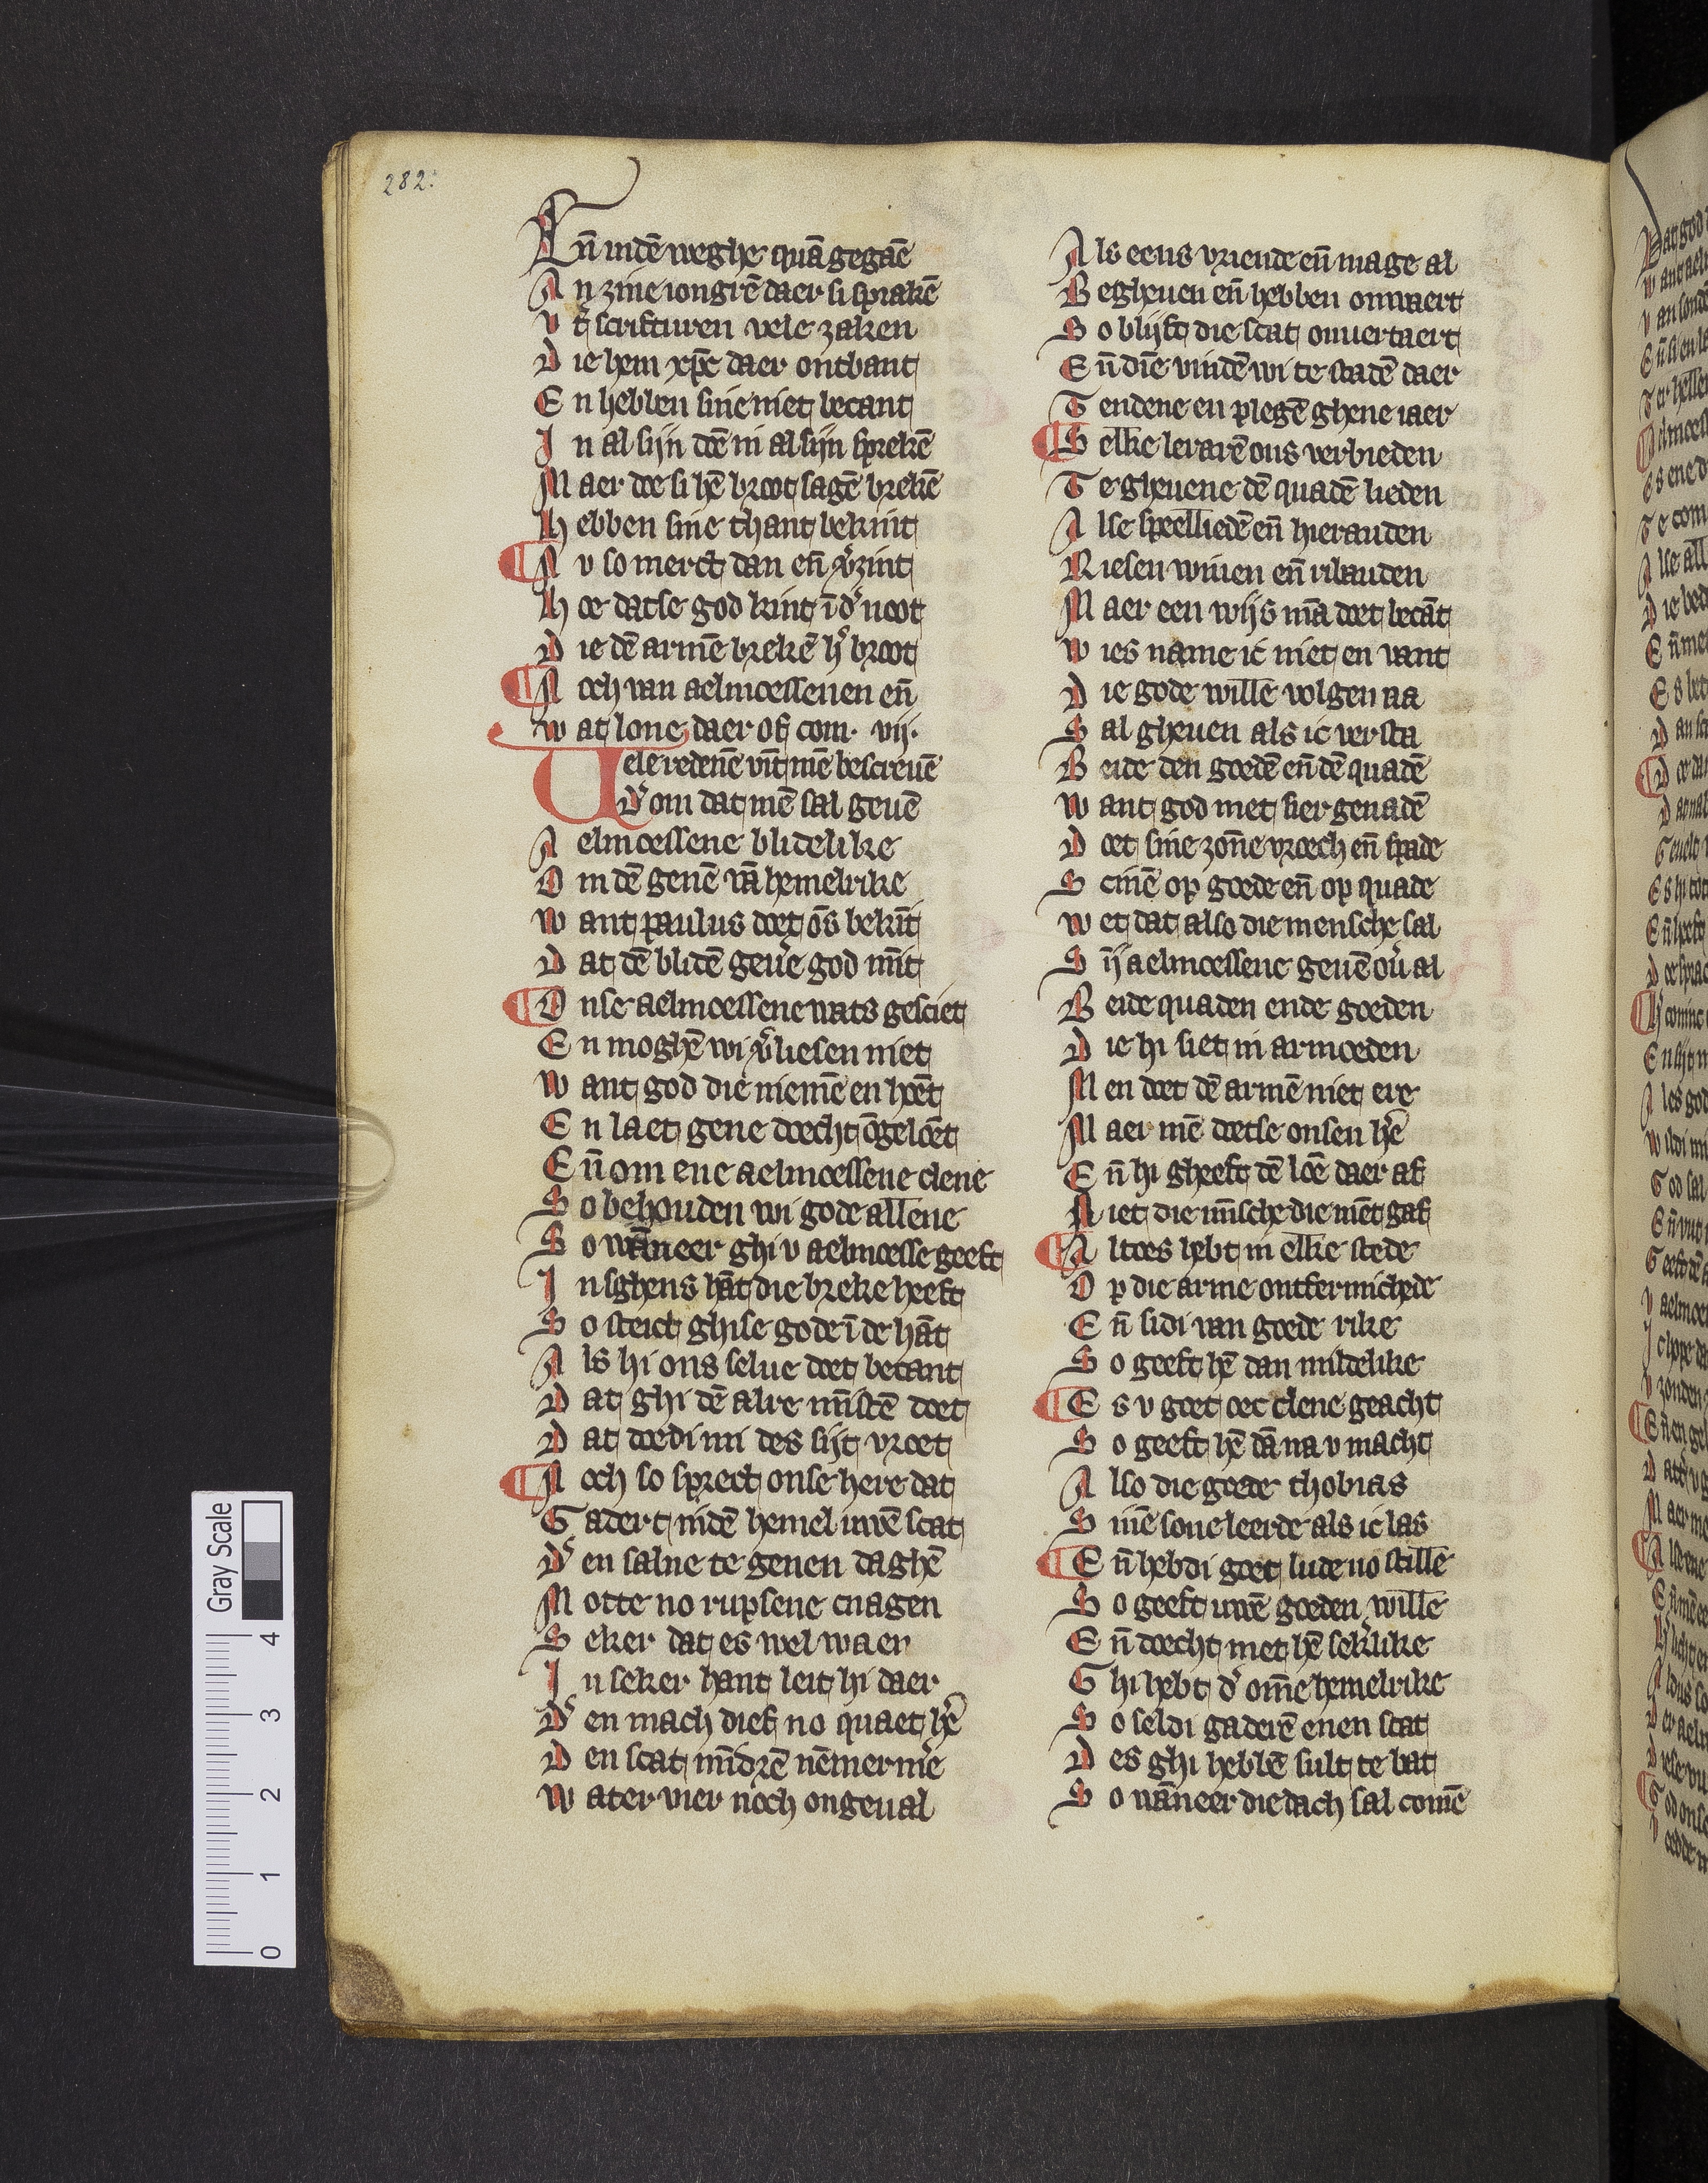 282.
En̄ indē weghe quā gegāe
An zine iongrē daer si sprakē
Vt scrifturen vele zaken
Die hem xp̄c daer ontbant
En hebben sine niet becant
In al sijn doē in al sijn sprekē
Maer doe si hē broot sagē brekē
Hebben sine thant bekint
Nu so merct dan en̄ v͛zint
Hoe datse god kint ī d͛ noot
Die dē armē brekē h͛ broot
Noch van aelmoessenen en̄
wat lone daer of com. vij.
Vele redenē vīt mē bescreuē
D͛ om dat mē sal geuē
Aelmoessene blidelike
Om dē genē vā hemelrike
Want paulus doet ōs bekīt
Dat dē blidē geuē god mīt
Onse aelmoessene wats gesciet
En moghē wi v͛liesen niet
Want god die niemē en hoēt
En laet gene doecht ōgeloēt
En̄ om ene aelmoessene clene
So behouden wi gode allene
So wānneer ghi v aelmoesse geeft
In sghens hāt die breke heeft
So steict ghise gode ī de hāt
Als hi ons selue doet becant
Dat ghi dē alre mīstē doet
Dat doedi mi des sijt vroet
Noch so sprect onse here dat
Gadert indē hemel uwē scat
D͛ en salne te genen daghē
Motte no rupsene cnagen
Seker dat es wel waer
In seker hant leit hi daer
D͛ en mach dief no quaet hē
Den scat mīdrē nēmermē
Water vier noch ongeual
Als eens vriende en̄ mage al
Begheuen en̄ hebben onwaert
So blijft die scat onuertaert
En̄ dīe vindē wi te stadē daer
Tendene en plegē ghene iaer
Selke lerarē ons verbieden
Te gheuene dē quadē lieden
Alse speelliedē en̄ hierauden
Riesen wiuen en̄ ribauden
Maer een wijs mā doet becāt
Wies name ic niet en vant
Die gode willē volgen na
Sal gheuen als ic versta
Beide den goedē en̄ dē quadē
Want god met sier genadē
Doet sine zonē vroech en̄ spade
Scinē op goede en̄ op quade
Wet dat also die mensche sal
Sij̄ aelmoessene geuē ou͛al
Beide quaden ende goeden
Die hi siet in armoeden
Men doet dē armē niet ere
Maer mē doetse onsen hē͛
En̄ hi gheeft dē loē daer af
Niet die mīsche die niēt gaf
Altoes hebt in elke stede
Op die arme ontfermichede
En̄ sidi van goede rike
So geeft hē dan mildelike
Es v goet oec clene geacht
So geeft hē dā na v macht
Also die goede thobias
Sinē sone leerde als ic las
En̄ hebdi goet lude no stille
So geeft uwē goeden wille
En̄ doecht met hē sek͛like
Ghi hebt d͛ om̄e hemelrike
So seldi gaderē enen scat
Des ghi hebbē sult te bat
So wāneer die dach sal comē
Gray Scale
0 1 2 3 4